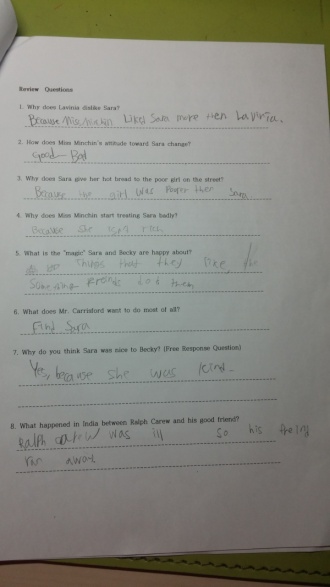 Review Questions
1. Why does Lavinia dislike Sara?
Because Miss minchin Likes Sara more then Lavinia.
2. How does Miss Minchin's attitude toward Sara change?
Good- Bad
3. Why does Sara give her hot bread to the poor girl on the street?
Because the girl was Poorer then Sara
4. Why does Miss Minchin start treating Sara badly?
Because she isn't rich
5. What is the "magic" Sara and Becky are happy about?
things that they like, the
Something
6. What does Mr. Carrisford want to do most of all?
Find Sara
7. Why do you think Sara was nice to Becky? (Free Response Question)
Yes, because she was kind.
8. What happened in India between Ralph Carew and his good friend?
Ralph was ill so his
ran away